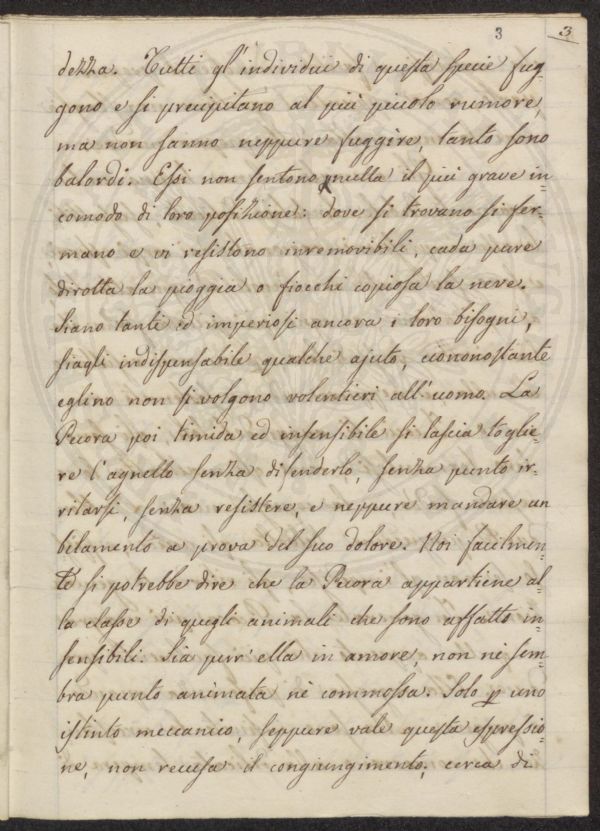 3 3
dezza. Tutti gl'individui di questa specie fug=
gono e si precipitano al più piccolo rumore,
ma non sanno neppure fuggire, tanto sono
balordi. Essi non sentono nulla il più grave in=
comodo di loro posizione: dove si trovano si fer=
mano e vi resistono inremovibili, cada pure
dirotta la pioggia o fiocchi copiosa la neve.
Siano tanti ed imperiosi ancora i loro bisogni,
siagli indispensabile qualche ajuto, ciononostante
eglino non si volgono volentieri all'uomo. La
Pecora poi timida ed insensibile si lascia toglie=
re l'agnello senza difenderlo, senza punto ir=
ritarsi, senza resistere, e neppure mandare un
belamento a prova del suo dolore. Noi facilmen=
te si potrebbe dire che la Pecora appartiene al=
la classe di quegli animali che sono affatto in=
sensibili. Sia purr'ella in amore, non nè sem=
bra punto animata nè commossa. Solo p uno
istinto meccanico, seppure vale questa espressio=
ne, non recusa il congiungimento, cerca di